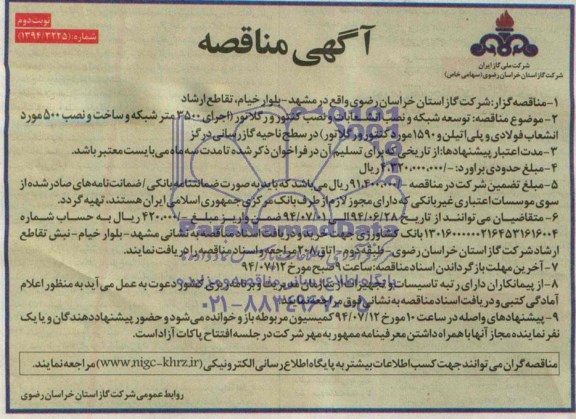 نوبت دوم
شماره: (۱۳۹۴/۳۲۲۵)
آگهی مناقصه
شرکت ملی گاز ایران
شرکت گاز استان خراسان رضوی (سهامی خاص)
۱- مناقصه گزار: شرکت گاز استان خراسان رضوی واقع در مشهد- بلوار خیام، تقاطع ارشاد
۲- موضوع مناقصه: توسعه شبکه و نصب انشعابات و نصب کنتور و رگلاتور (اجرای ۳۵۰۰ متر شبکه و ساخت و نصب ۵۰۰ مورد
انشعاب فولادی و پلی اتیلن و ۱۵۹۰ مورد کنتور و رگلاتور) در سطح ناحیه گازرسانی درگز
۳- مدت اعتبار پیشنهادها: از تاریخی که برای تسلیم آن در فراخوان ذکر شده تا مدت سه ماه می بایست معتبر باشد.
۴- مبلغ حدودی برآورد: -/۴.۲۳۰.۰۰۰.۰۰۰ ریال
۵- مبلغ تضمین شرکت در مناقصه -/۹۱.۴۰۰.۰۰۰ ریال می باشد که باید به صورت ضمانتنامه بانکی / ضمانت نامه های صادر شده از
سوی موسسات اعتباری غیر بانکی که دارای مجوز لازم از طرف بانک مرکزی جمهوری اسلامی ایران هستند، تهیه گردد.
۶- متقاضیان می توانند از تاریخ ۹۴/۰۶/۲۸ الی ۹۴/۰۷/۰۱ ضمن واریز مبلغ -/۴۲۰.۰۰۰ ریال به حساب شماره
بانک کشاورزی جهت خرید و دریافت اسناد مناقصه، به نشانی مشهد- بلوار خیام- نبش تقاطع
ارشاد شرکت گاز استان خراسان رضوی- طبقه دوم- اتاق ۲۰۸ مراجعه و اسناد مناقصه را دریافت نمایند.
۷- آخرین مهلت بازگرداندن اسناد مناقصه: ساعت ۹ صبح مورخ ۹۴/۰۷/۱۲
۸- از پیمانکاران دارای رتبه تاسیسات و تجهیزات از سازمان مدیریت و برنامه ریزی کشور دعوت به عمل می آید به منظور اعلام
آمادگی کتبی و دریافت اسناد مناقصه به نشانی فوق مراجعه نمایند.
۹- پیشنهادهای واصله در ساعت ۱۰ مورخ ۹۴/۰۷/۱۲ کمیسیون مربوطه باز و خوانده می شود و حضور پیشنهاد دهندگان و یا یک
نفر نماینده مجاز آنها با همراه داشتن معرفینامه ممهور به مهر شرکت در جلسه افتتاح پاکات آزاد است.
مناقصه گران می توانند جهت کسب اطلاعات بیشتر به پایگاه اطلاع رسانی الکترونیکی (www.nigc-khrz.ir) مراجعه نمایند.
روابط عمومی شرکت گاز استان خراسان رضوی
ParsNamadData
پایگاه اطلاع رسانی مناقصه و مزایده
۰۲۱-۸۸۳۴۹۶۷۰-۵